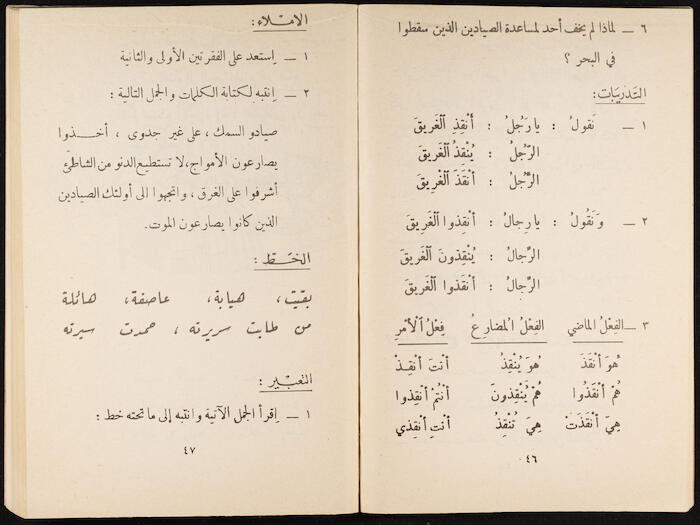 ٦ — لماذا لم يخف أحد لمساعدة الصيادين الذين سقطوا
في البحر ؟
التدريبات :
١ — نَقولُ : يا رَجُلُ : أَنْقِذِ ٱلْغَريقَ
الرَّجُلُ : يُنْقِذُ ٱلْغَريقَ
الرَّجُلُ : أَنْقَذَ ٱلْغَريقَ
٢ — وَنَقولُ : يا رِجالُ : أَنْقِذوا ٱلْغَريقَ
الرِّجالُ : يُنْقِذونَ ٱلْغَريقَ
الرِّجالُ : أَنْقَذوا ٱلْغَريقَ
٣ — الفِعْلُ الماضي الفِعْلُ المُضارِعُ فِعْلُ ٱلأَمْرِ
هُوَ أَنْقَذَ هُوَ يُنْقِذُ أَنْتَ أَنْقِذْ
هُمْ أَنْقَذُوا هُمْ يُنْقِذُونَ أَنْتُمْ أَنْقِذُوا
هِيَ أَنْقَذَتْ هِيَ تُنْقِذُ أَنْتِ أَنْقِذي
٤٦
الاملاء :
١ — إستعد على الفقرتين الأولى والثانية
٢ — إنتبه لكتابة الكلمات والجمل التالية :
صيادو السمك ، على غير جدوى ، أخذوا
يصارعون الأمواج، لا تستطيع الدنو من الشاطئ
أشرفوا على الغرق ، واتجهوا الى أولئك الصيادين
الذين كانوا يصارعون الموت.
الخط :
بقيت ، هيابة ، عاصفة ، هائلة
من طابت سريرته ، حمدت سيرته
التعبير :
١ — إقرأ الجمل الآتية وانتبه إلى ما تحته خط :
٤٧